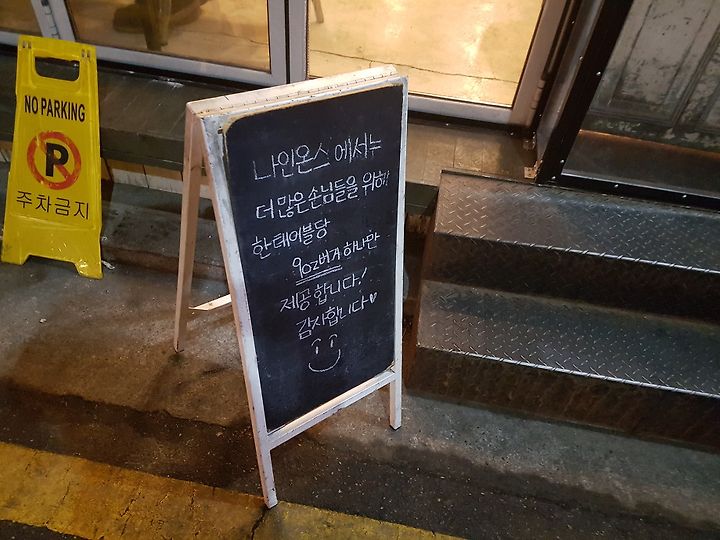 NO PARKING
P
주차금지
나인온스 에서는
더 많은 손님들을 위해
한 테이블당
9oz버거 하나만
제공합니다!
감사합니다♡